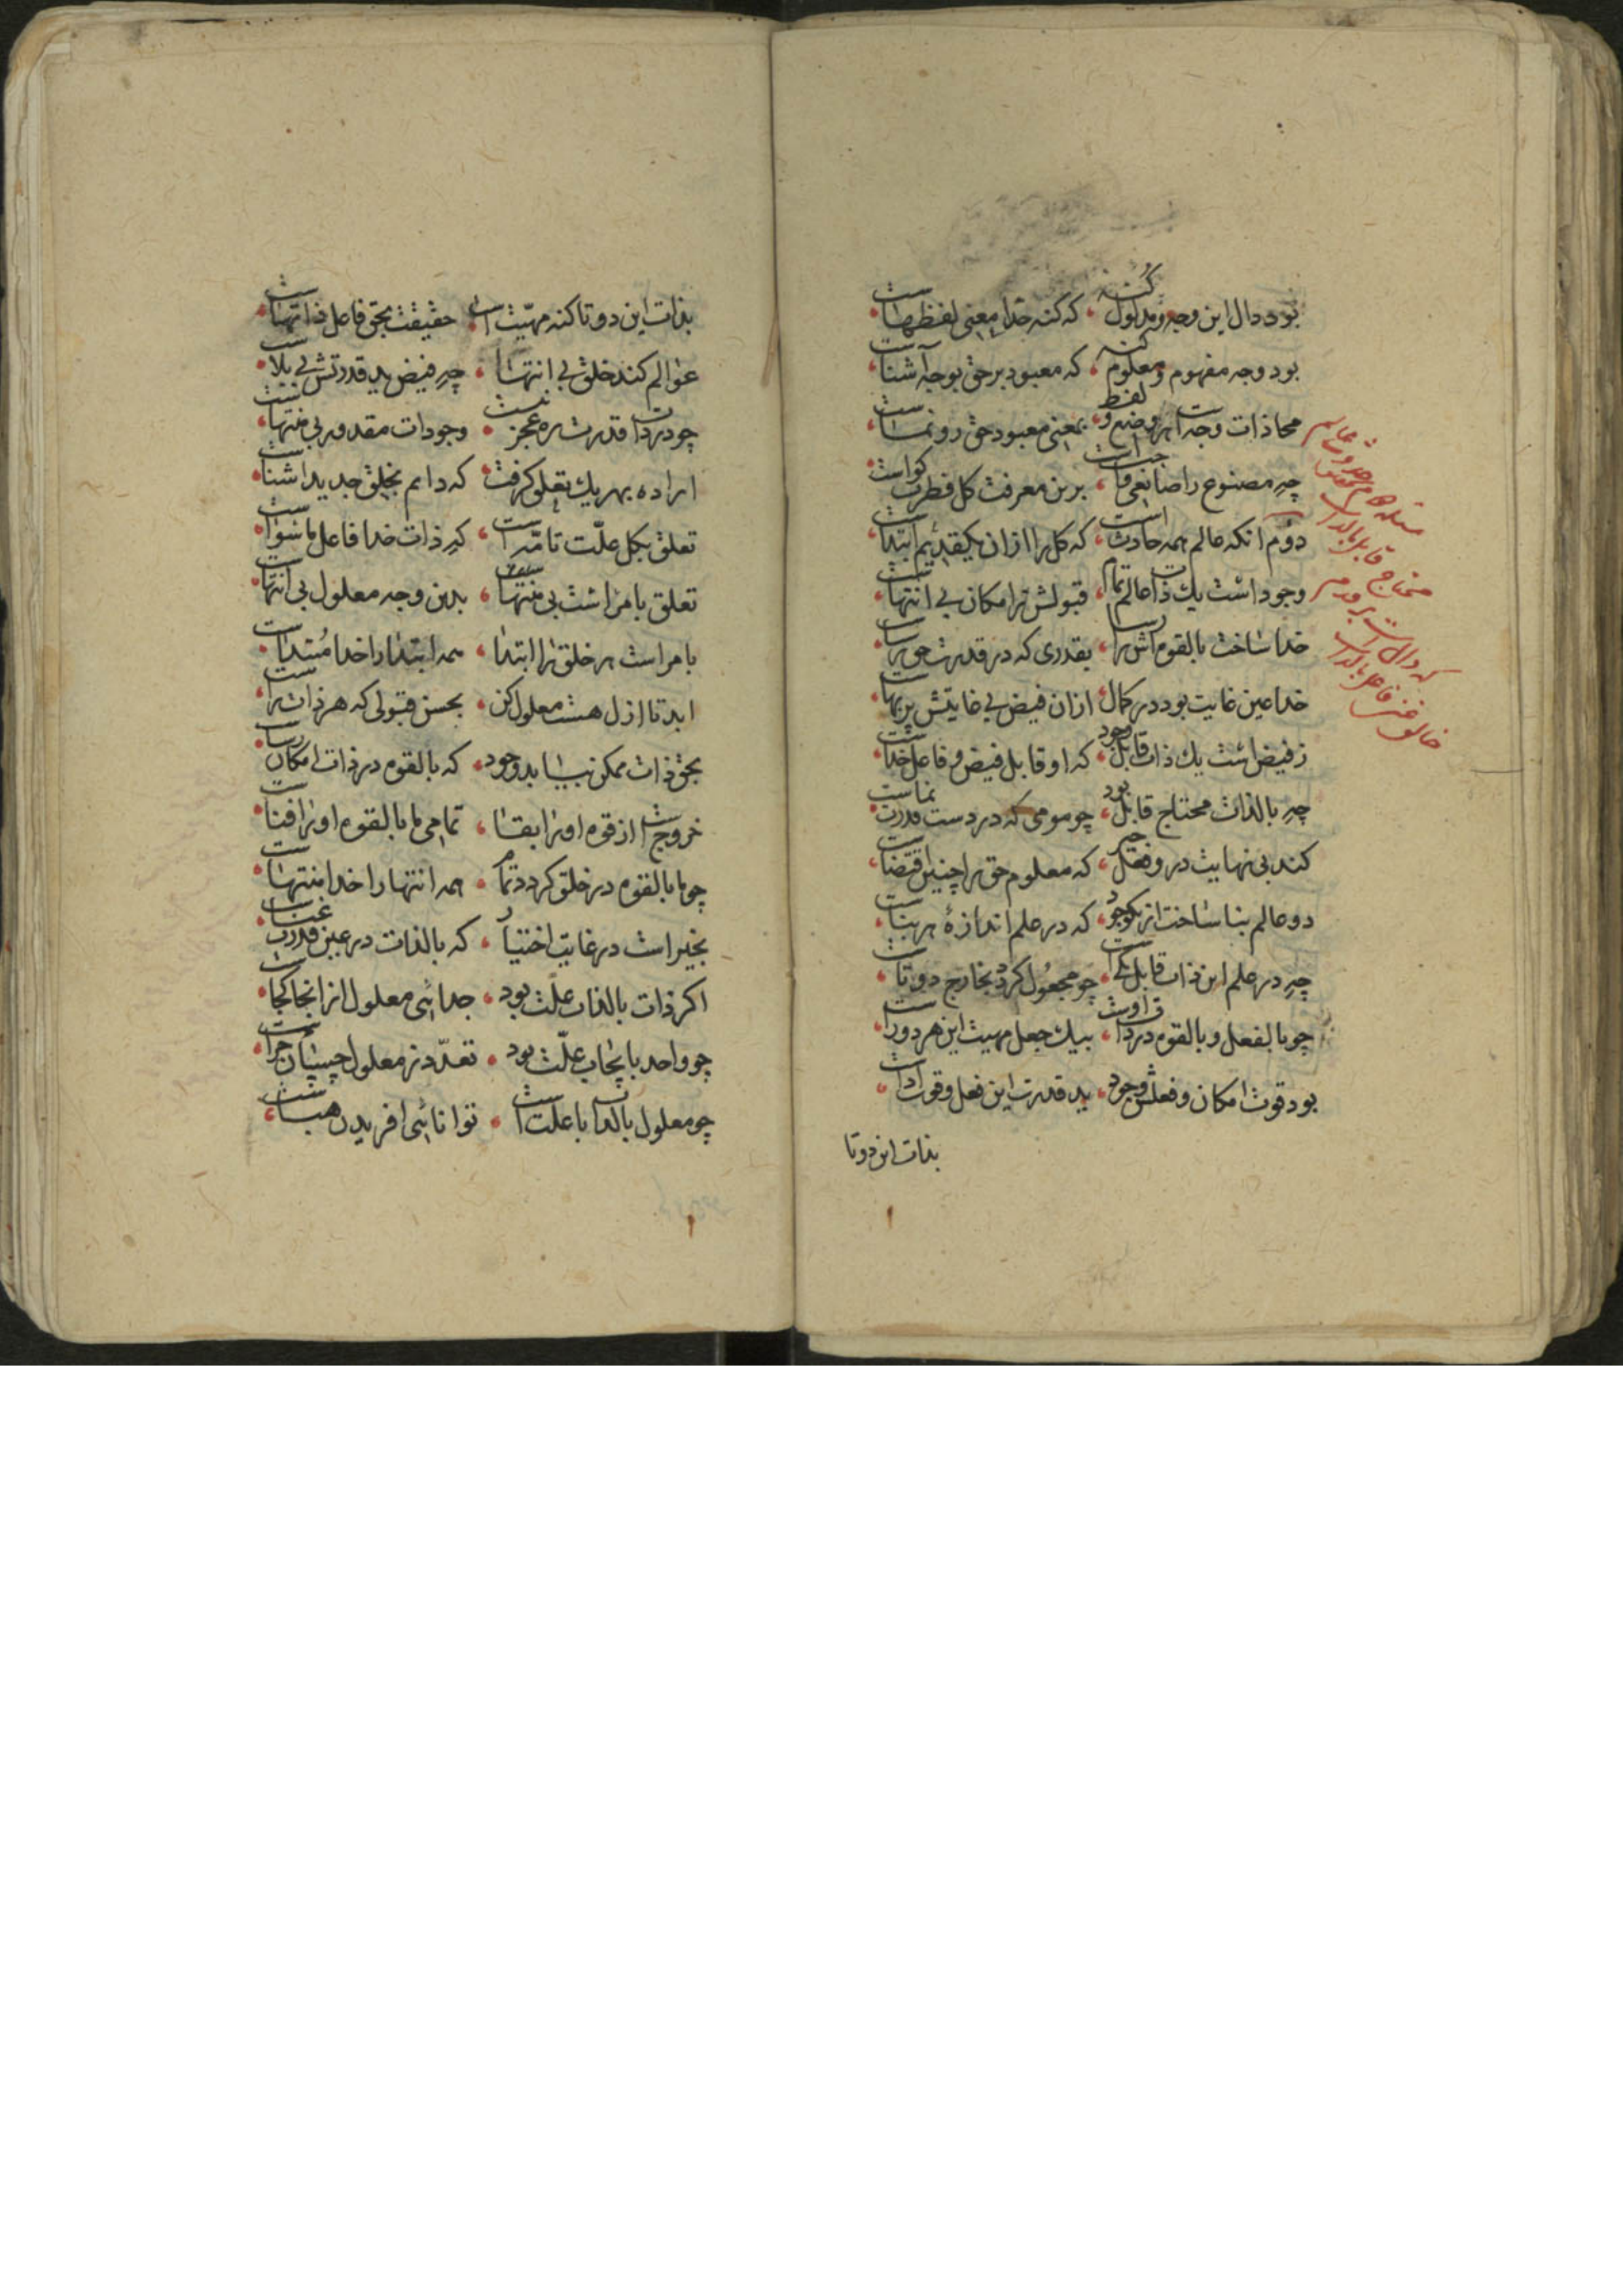 بود دال این وجه و مدلول کنه که کنه خدا معنی لفظهاست
بود وجه مفهوم و معلوم کنه که معبود برحق بوجه آشناست
محاذات وجه است هر وضع و لفظ بمعنی معبود حق رونماست
چه مصنوع را صانعی واجب است برین معرفت کل فطرت کواست
دوم انکه عالم همه حادث است که کل را ازان یکقدیم ابتداست
وجود اشت یك ذات عالم تمام قبولش ترا مکان بی انتهاست
خدا ساخت بالقوه اش را بقدری که در قدرت حق
خدا عین غایت بود در کمال ازان فیض بی غایتش پربهاست
ز فیض اشت یك ذات قابل وجود که او قابل فیض و فاعل خداست
چه بالذات محتاج قابل بود چو مومی که در دست قدرت نماست
کند بی نهایت درو فعل خیر که معلوم حق را چنین اقتضاست
دو عالم بنا ساخت از یکوجود که در علم اندازهٔ هر بناست
چه در علم این ذات قابل یکی است چو مجعول کردد بخارج دوتاست
چو بالفعل و بالقوه در ذات اوست بیك جعل مهیت این هر دو راست
بود قوت امکان و فعلش وجود ید قدرت این فعل و قوت اداست
بذات این دوتا
بذات این دوتا کنه مهیت است حقیقت بحق فاعل ذاتهاست
عوالم کند خلق بی انتها چه فیض ید قدرتش بی بلاست
چو در ذات قدرت ره عجز نیست وجودات مقدور بی منتهاست
اراده بهر یك تعلق کرفت که دایم بخلق جدید اشناست
تعلق بکل علت تامه است که ذات خدا فاعل ماسواست
تعلق بامر اشت بی منتها بدین وجه معلول بی انتهاست
بامر است هر خلق را ابتدا همه ابتدا را خدا مبتداست
ابد تا ازل هست معلول کن بحسن قبولی که هر ذات راست
بحق ذات ممکن بیابد وجود که بالقوه در ذات امکان رساست
خروج از قوه او را بقا تمامی ما بالقوه او را فناست
چو ما بالقوه در خلق کردد تمام همه انتها را خدا منتهاست
بخیر است در غایت اختیار که بالذات در عین قدرت غناست
اکر ذات بالذات علت بود جدائی معلول از انجا کجاست
چو واحد بایجاب علت بود تعدد ز معلول چسپان چراست
چو معلول بالذات با علت است توانائی افریدن هباست